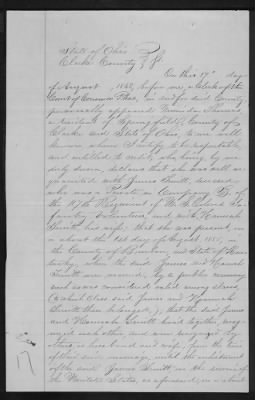 State of Ohio }
Clarke County } ss.
On this 17th day
of August, 1868, before me, a Clerk of the
Court of Common Pleas, in and for said County
personally appeared
a resident of Springfield, County of
Clarke and State of Ohio, to me well
known whom I certify to be respectable
and entitled to credit, who being, by me
duly sworn, declares that she was well ac
quainted with James Truitt, deceased
who was a Private in Company B, of
the 117th Regiment of U.S. Colored In-
fantry Volunteers, and with Hannah
Truitt his wife; that she was present, on
or about the 1st day of August
the County of and State of Ken-
tucky, when the said James and Hannah
Truitt were married, by a public ceremony
such as was considered valid among slaves,
to which class said James and Hannah
Truitt then belonged; that the said James
and Hannah Truitt lived together,
and were recognized by
others, as husband and wife, from the time
of their said marriage, until the enlistment
of the said James Truitt, in the service of
the United States, as aforesaid, on or about
17